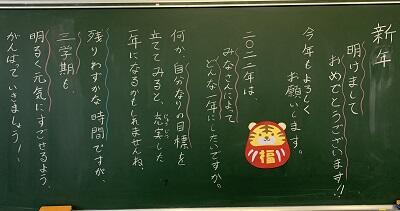 新年
明けまして
おめでとうございます!!
今年もよろしく
お願いします。
二〇二二年は、
みなさんによって
どんな一年にしたいですか。
何か、自分なりの目標を
立ててみると、充実した
じゅうじつ
一年になるかもしれませんね。
残りわずかな時間ですが、
三学期も、
明るく元気にすごせるよう、
がんばっていきましょう!
福